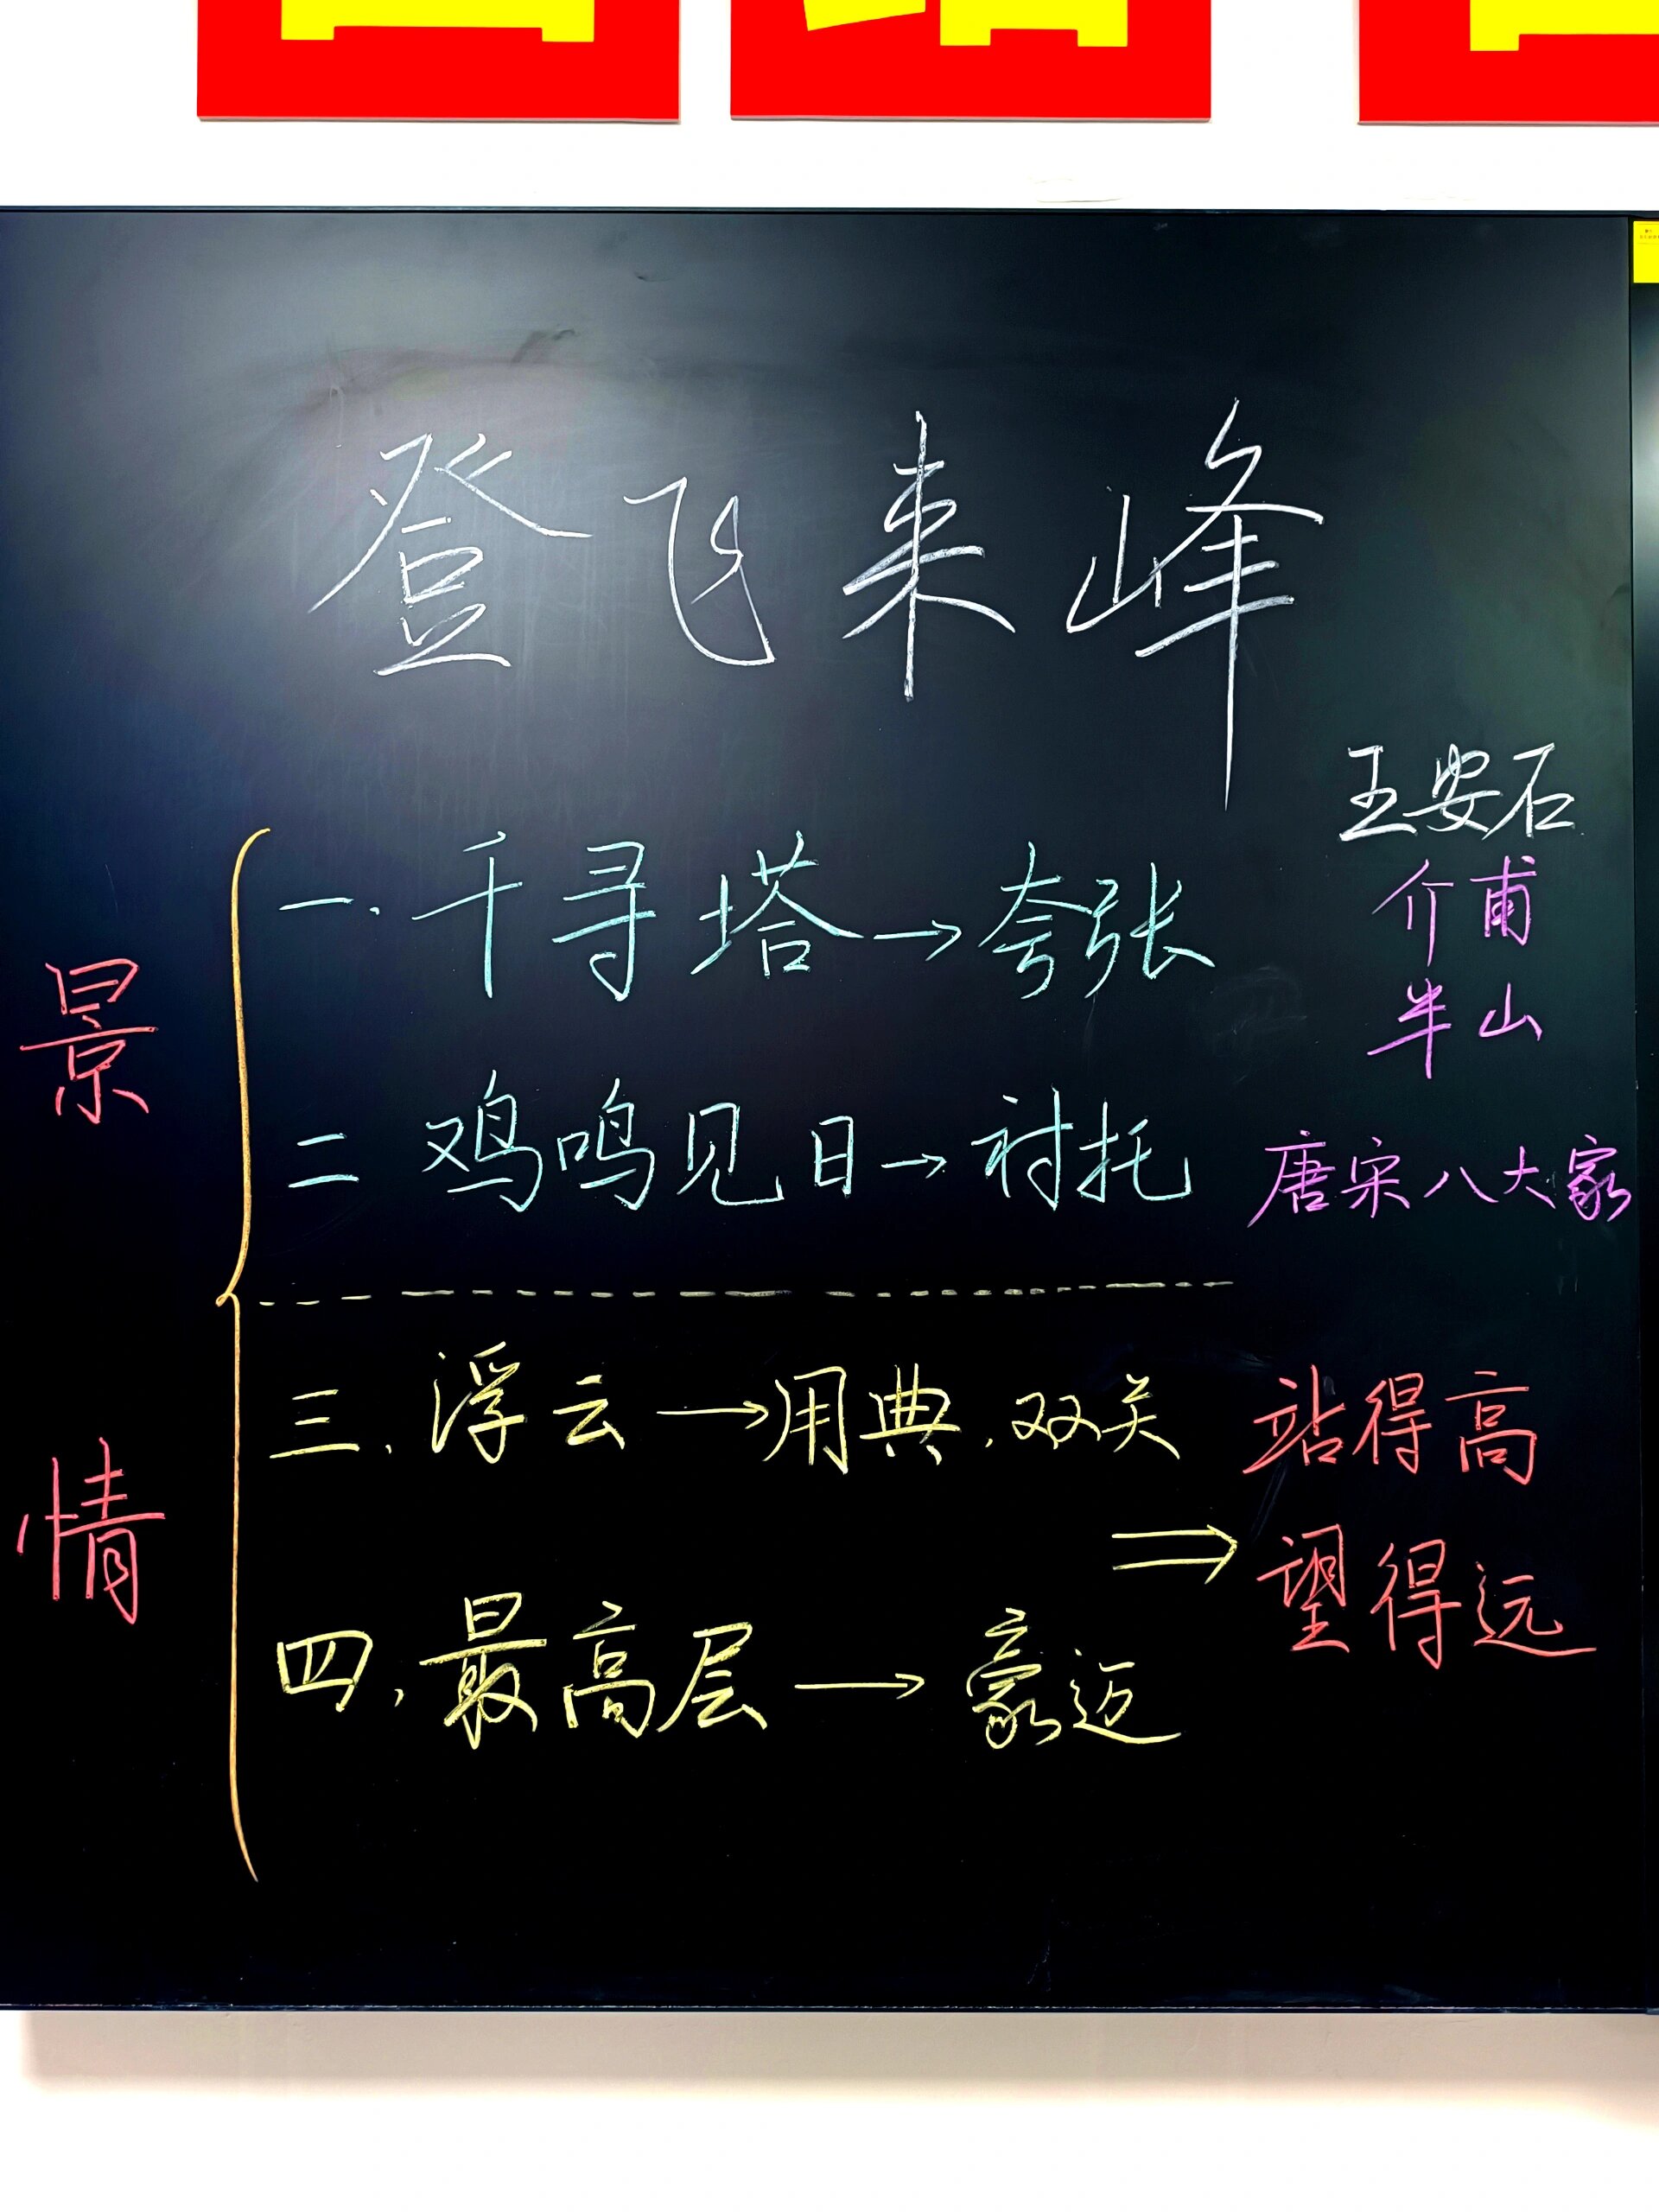 登飞来峰
王安石
介甫
半山
唐宋八大家
景
一.千寻塔→夸张
二 鸡鸣见日→衬托
情
三.浮云→用典.双关
四.最高层→豪迈
⇒
站得高
望得远